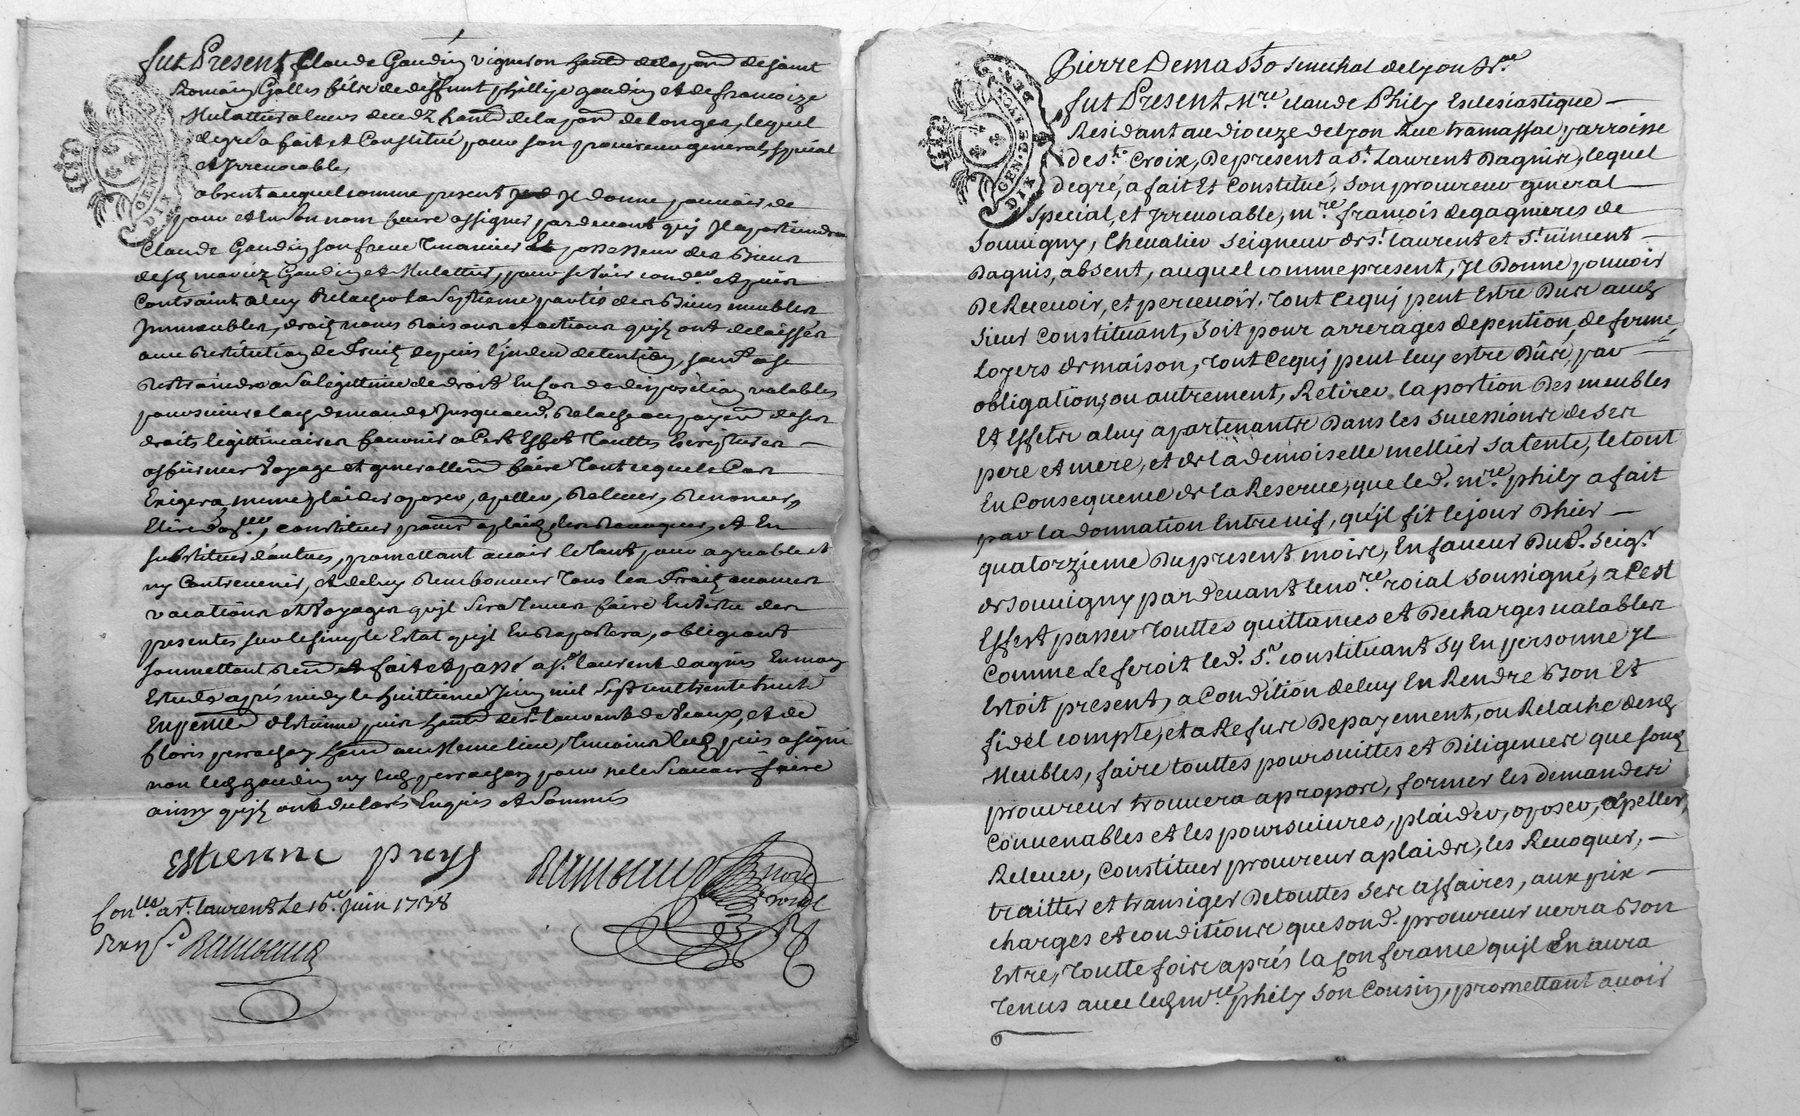 fut Present Claude Gaudin vigneron habt de la parr de saint
Romain Galles fils de deffunt phillipe gaudin et de francoize
Mulattier aleurs decedz habts de la parr de longes, lequel
degré a fait et Constitué pour son procureur general spécial
et Irrevocable,
absent auquel comme present Il donne pouvoir de
pour et en son nom faire assigner pardevant quj Il apartiendra
Claude Gaudin son frere tenancier et possesseur des Biens
desd mariez Gaudin et Mulattier, pour se voir condner et puis
Contraint aluy Relacher la Septieme partie des Biens meubles
Immeubles, droits noms Raisons et actions qu'jls ont delaissés
avec Restitution de fruits depuis l'jndeu detention, sauf a se
Restraindre a sa legittime de droit en cas de disposition valable,
poursuivre lad demande Jusqu'au Relachs ou payemt de ses
droits legittimaires fournir a Cest Effet Touttes Escrptures
affirmer voyage et generallemt faire Tout ce que le Cas
Exigera, mesme plaider oposer, apeller, Relever, Renoncer,
Elire domlle, constituer procur a plaids les Revoquer, et En
substituer d'autres, promettant avoir le tout pour agreable et
ny Contrevenir, et deluy Rembourcer tous les fraiz avances
vacations et voyages qu'jl sera tenu faire En vertu des
presentes sur le simple Estat qu'jl En Raportera, obligeant
soummettant Rend et fait et passé a St laurent dagnis En mon
Estude aprés midy le huittieme Juin mil sept cent trente huit
En presence d'Estienne puis habt de St laurent de Veaux, et de
floris perrachon habt au mesme lieu, temoins led puis a signé
non led gaudin ny led perrachon pour ne le scavoir faire
ainsy qu'jls ont declarés Enquis et Sommés
Estienne puys Rambaud nore roial
Conlle a St laurent le 16e Juin 1738
Rambaud
Pierre Demasso senechal de lyon
fut Present, Mre claude Philly Eclesiastique
Residant au diocze de lyon Rue tramassac parroisse
de ste Croix, De present a St Laurent Dagnis, lequel
degré, a fait Et Constitué, son procureur general
special, et Irrevocable, mre francois de gagnieres de
souvigny, Chevalier seigneur de st laurent et st niment
Dagnis, absent, auquel comme present, Il Donne pouvoir
De Recevoir, et percevoir, Tout Cequj peut Estre Dû audt
sieur Constituant, soit pour arrerages depention, de ferme,
Loyers de maison, Tout Cequj peut luy estre Dû, par
obligations, ou autrement, Retirer la portion Des meubles
Et Effets aluy apartenants Dans les sucessions de ses
pere et mere, et de la demoiselle mellier sa tente, le tout
En Consequence de la Reserve, que led. mre philly a fait
par la donnation Entre vif, qu'jl fit le jour D'hier
quatorzieme Du present mois, En faveur Dud. seigr
de souvigny pardevant le nore roial soussigné, a Cest
Effect passer Touttes quittances et Decharges valables
Comme Le feroit led. sr constituant sy En personne Il
Estoit present, a Condition deluy En Rendre Bon Et
fidel compte, et a Refus De payement, ou Relache desd
Meubles, faire touttes poursuittes et Diligences que sond
procureur trouvera a propos, former les demandes
Convenables et les poursuivres, plaider, oposer, apeller,
Relever, Constituer procureur a plaids, les Revoquer,
traitter et transiger De touttes ses affaires, aux prix
charges et conditions que sond. procureur verra Bon
Estre, Toutte fois aprés la Conferance qu'jl En aura
Tenus avec led mre philly son Cousin, promettant avoir